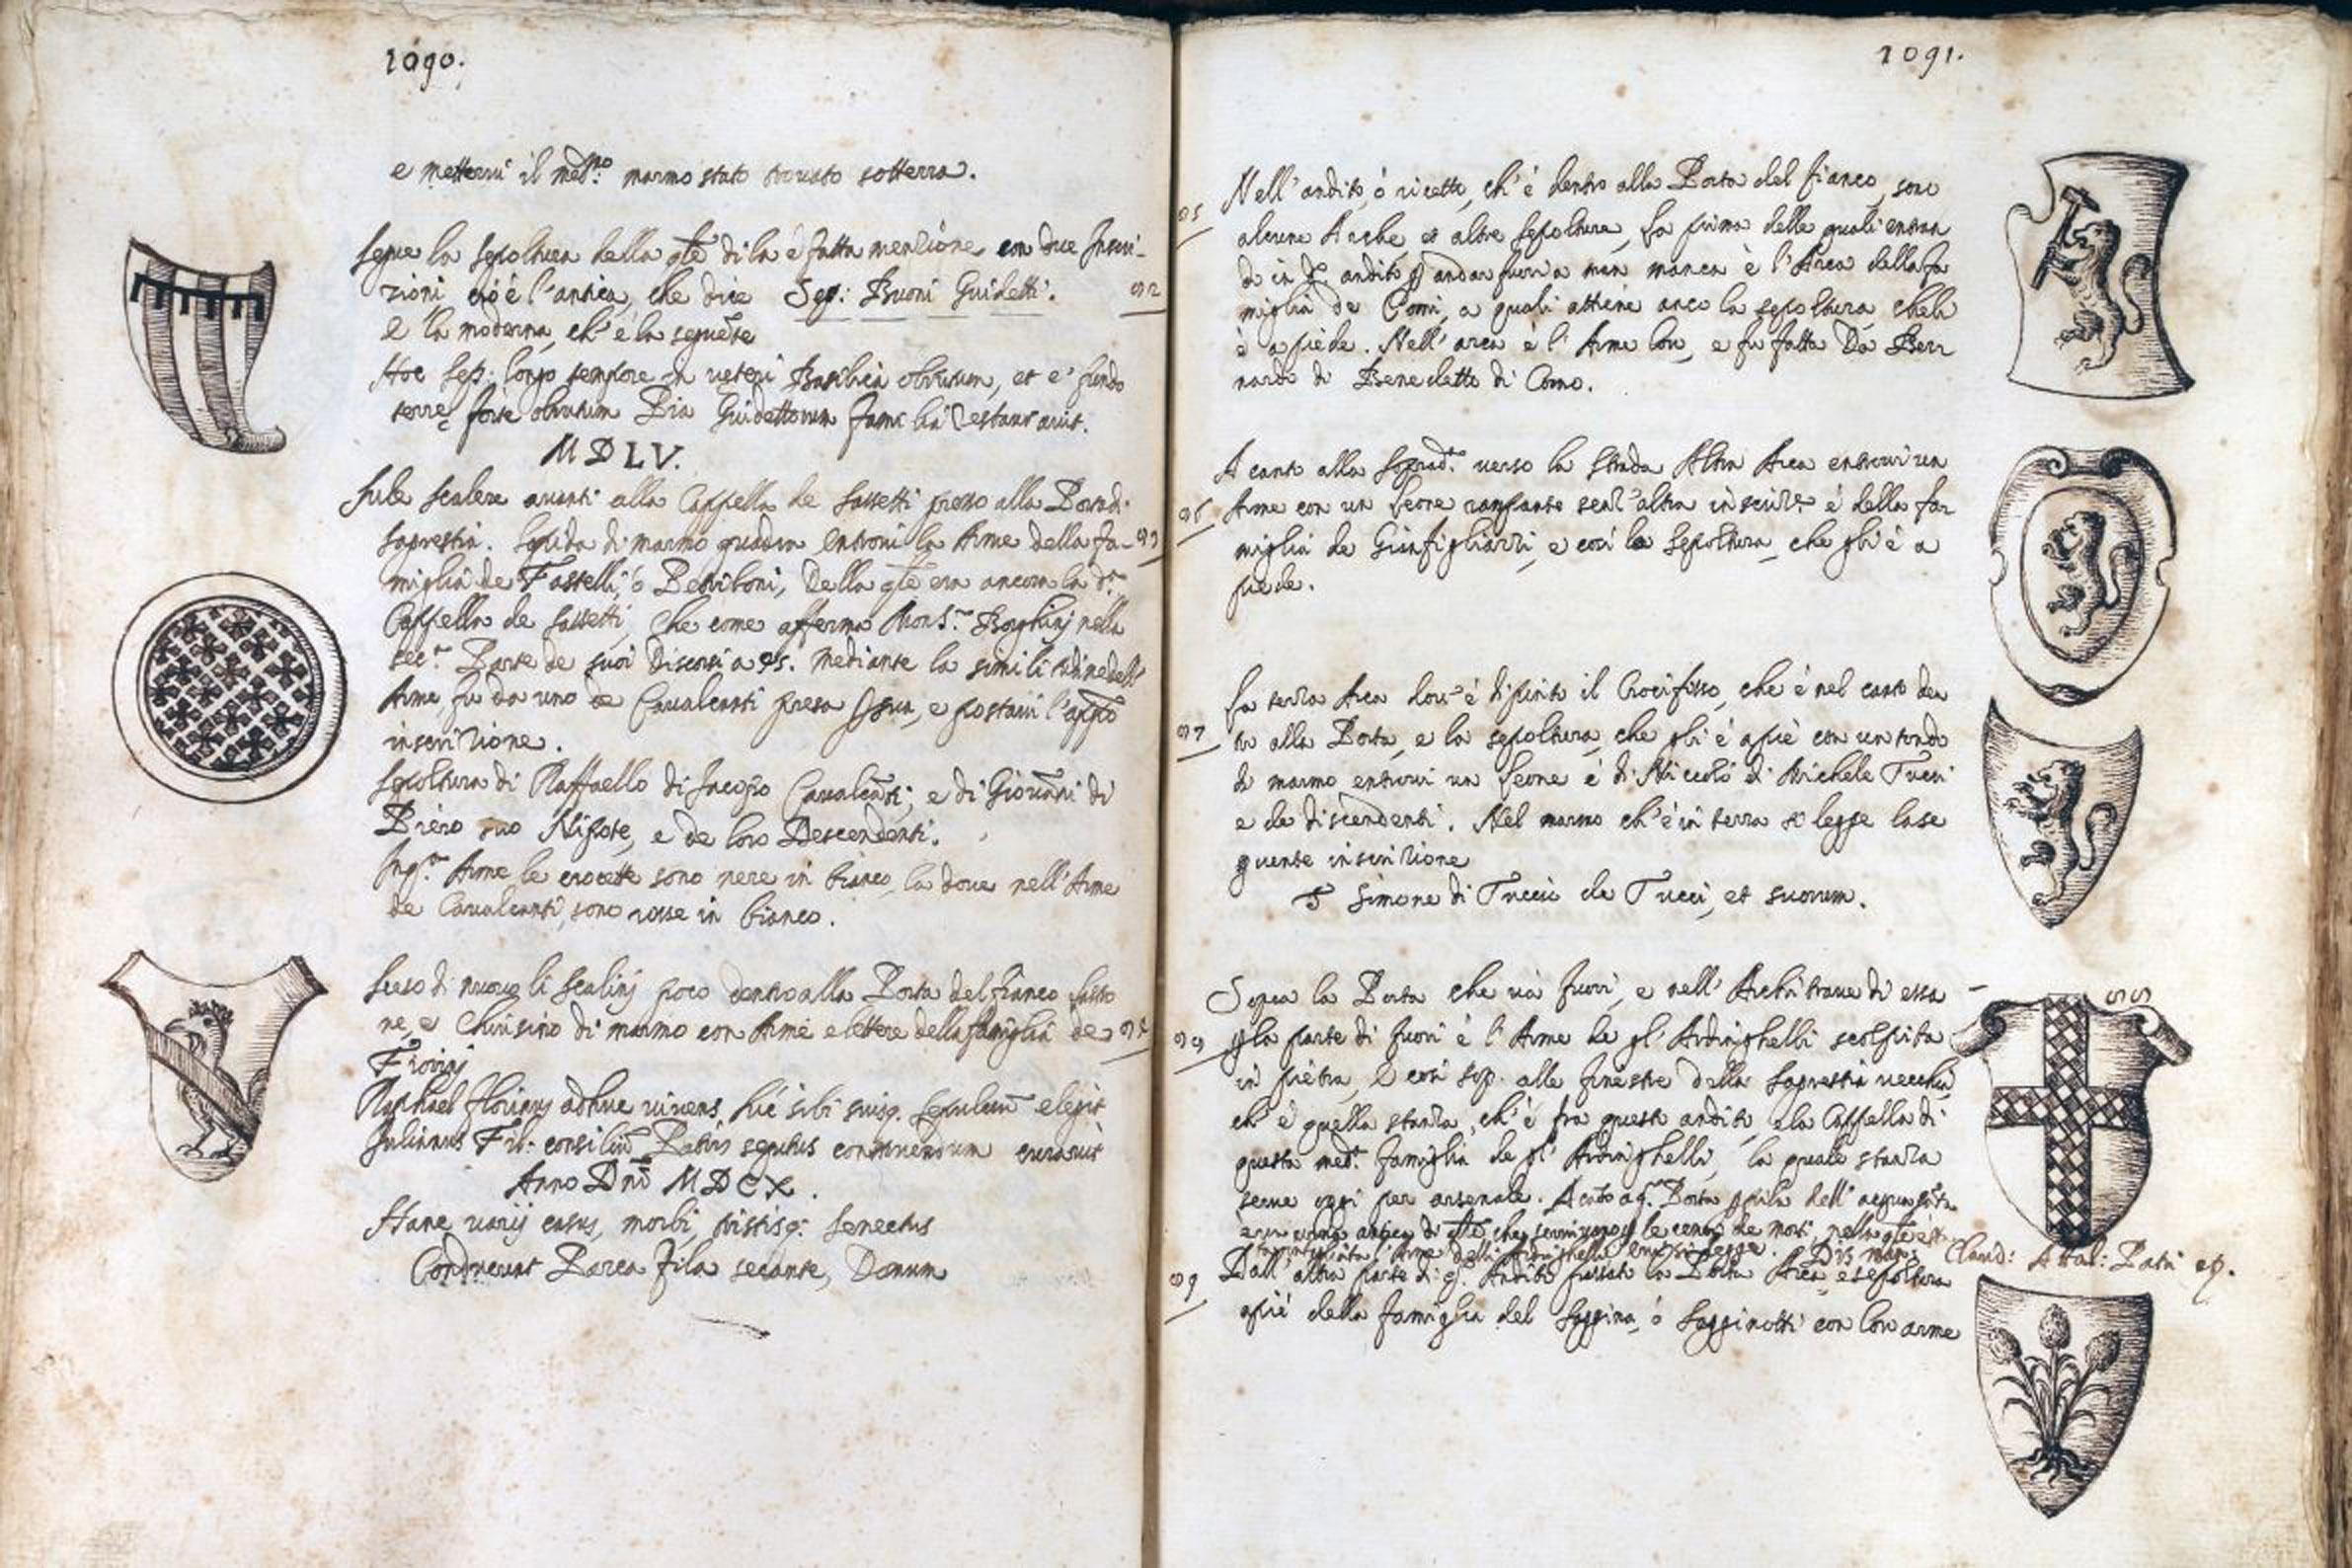 1090.
e mettervi il med.mo marmo stato trovato sotterra.
Segue la sepoltura della qle di là è fatta menzione con due Inscri-
zioni cioè l'antica, che dice Sep: Buoni Guidetti.
92
E la moderna, ch'è la seguēte
Hoc Sep: longo tempore in veteri Basilica obrutum, et e' fundo
terrę forte obrutum Pia Guidettorum familia restauravit.
MDLV.
Sule scalere avanti alla Cappella de Sassetti presso alla Porta di
Sagrestia. Lapida di marmo quadra entrovi la Arme della fa-
93
miglia de Fastelli, ò Petriboni, Della qle era ancora la d.a
Cappella de Sassetti, Che come afferma Mons.r Borghinj nella
sec.a Parte de suoi Discorsi a 95. mediante la similitudine dell'
Arme fu da uno de Cavalcanti presa p sua, e postavi l'app.o
inscrizione.
Sepoltura di Raffaello di Jacopo Cavalcāti, e di Giovāni di
Piero suo Nipote, e de loro Descendenti.
In q.a Arme le crocette sono nere in bianco, la dove nell'Arme
de Cavalcanti, sono rosse in bianco.
Sceso di nuovo li scalinj poco dentro alla Porta del fianco lasto
ne, e Chiusino di marmo con Arme e lettere della famiglia de
Fiorinj
Raphael florinus adhuc vivens hic sibi suisq. sepulcrū elegit
Julianus Fil: consiliū Patris sequtus construendum curavit
Anno Dnī MDCX.
Hanc varij casus, morbi, tristisq: senectus
Conducunt Parca fila secante, Domum
1091.
95
Nell'andito, ò ricetto, ch'è dentro alla Porta del fianco, sono
alcune Arche, et altre sepolture, la prima delle quali entran
do in q. andito p andar fuori a man manca è l'Arca della fa
miglia de Comi, a quali attiene anco la sepoltura che li
è a piede. Nell'arca è l'Arme loro, e fu fatta Da Ber
nardo di Benedetto di Como.
96
A canto alla soprad.a verso la strada Altra Arca entrovi un
Arme con un Leone rampante senz'altra inscriz.e è della fa
miglia de Gianfigliazzi, e così la sepoltura, che gli è a
piede.
97
La terza Arca dov'è dipinto il Crocifisso, che è nel canto den
tro alla Porta, e la sepoltura, che gli è a piè con un tondo
di marmo entrovi un Leone è di Niccolò di Michele Tucci
e de discendenti. Nel marmo ch'è in terra si legge la se
guente inscrizione
S Simone di Tuccio de Tucci, et suorum.
98
Sopra la Porta che và fuori, e nell'Architrave di essa
p la parte di fuori è l'Arme de gl'Ardinghelli scolpita
in pietra, E così sop. alle finestre della Sagrestia vecchia
ch'è quella stanza, ch'è fra questo andito, e la Cappella di
questa med.a famiglia de gl'Ardinghelli, la quale stanza
serve oggi per arsenale. Acāto a q.a Porta p pila dell'acqua sāta
le ceneri de morti, nella qle è
Dis man: Claud: Attal: Patri
99
Dall'altra parte di q. Andito passata la Porta Arca, e sepoltura
a piè della famiglia del Saggina, ò Sagginotti con loro arme